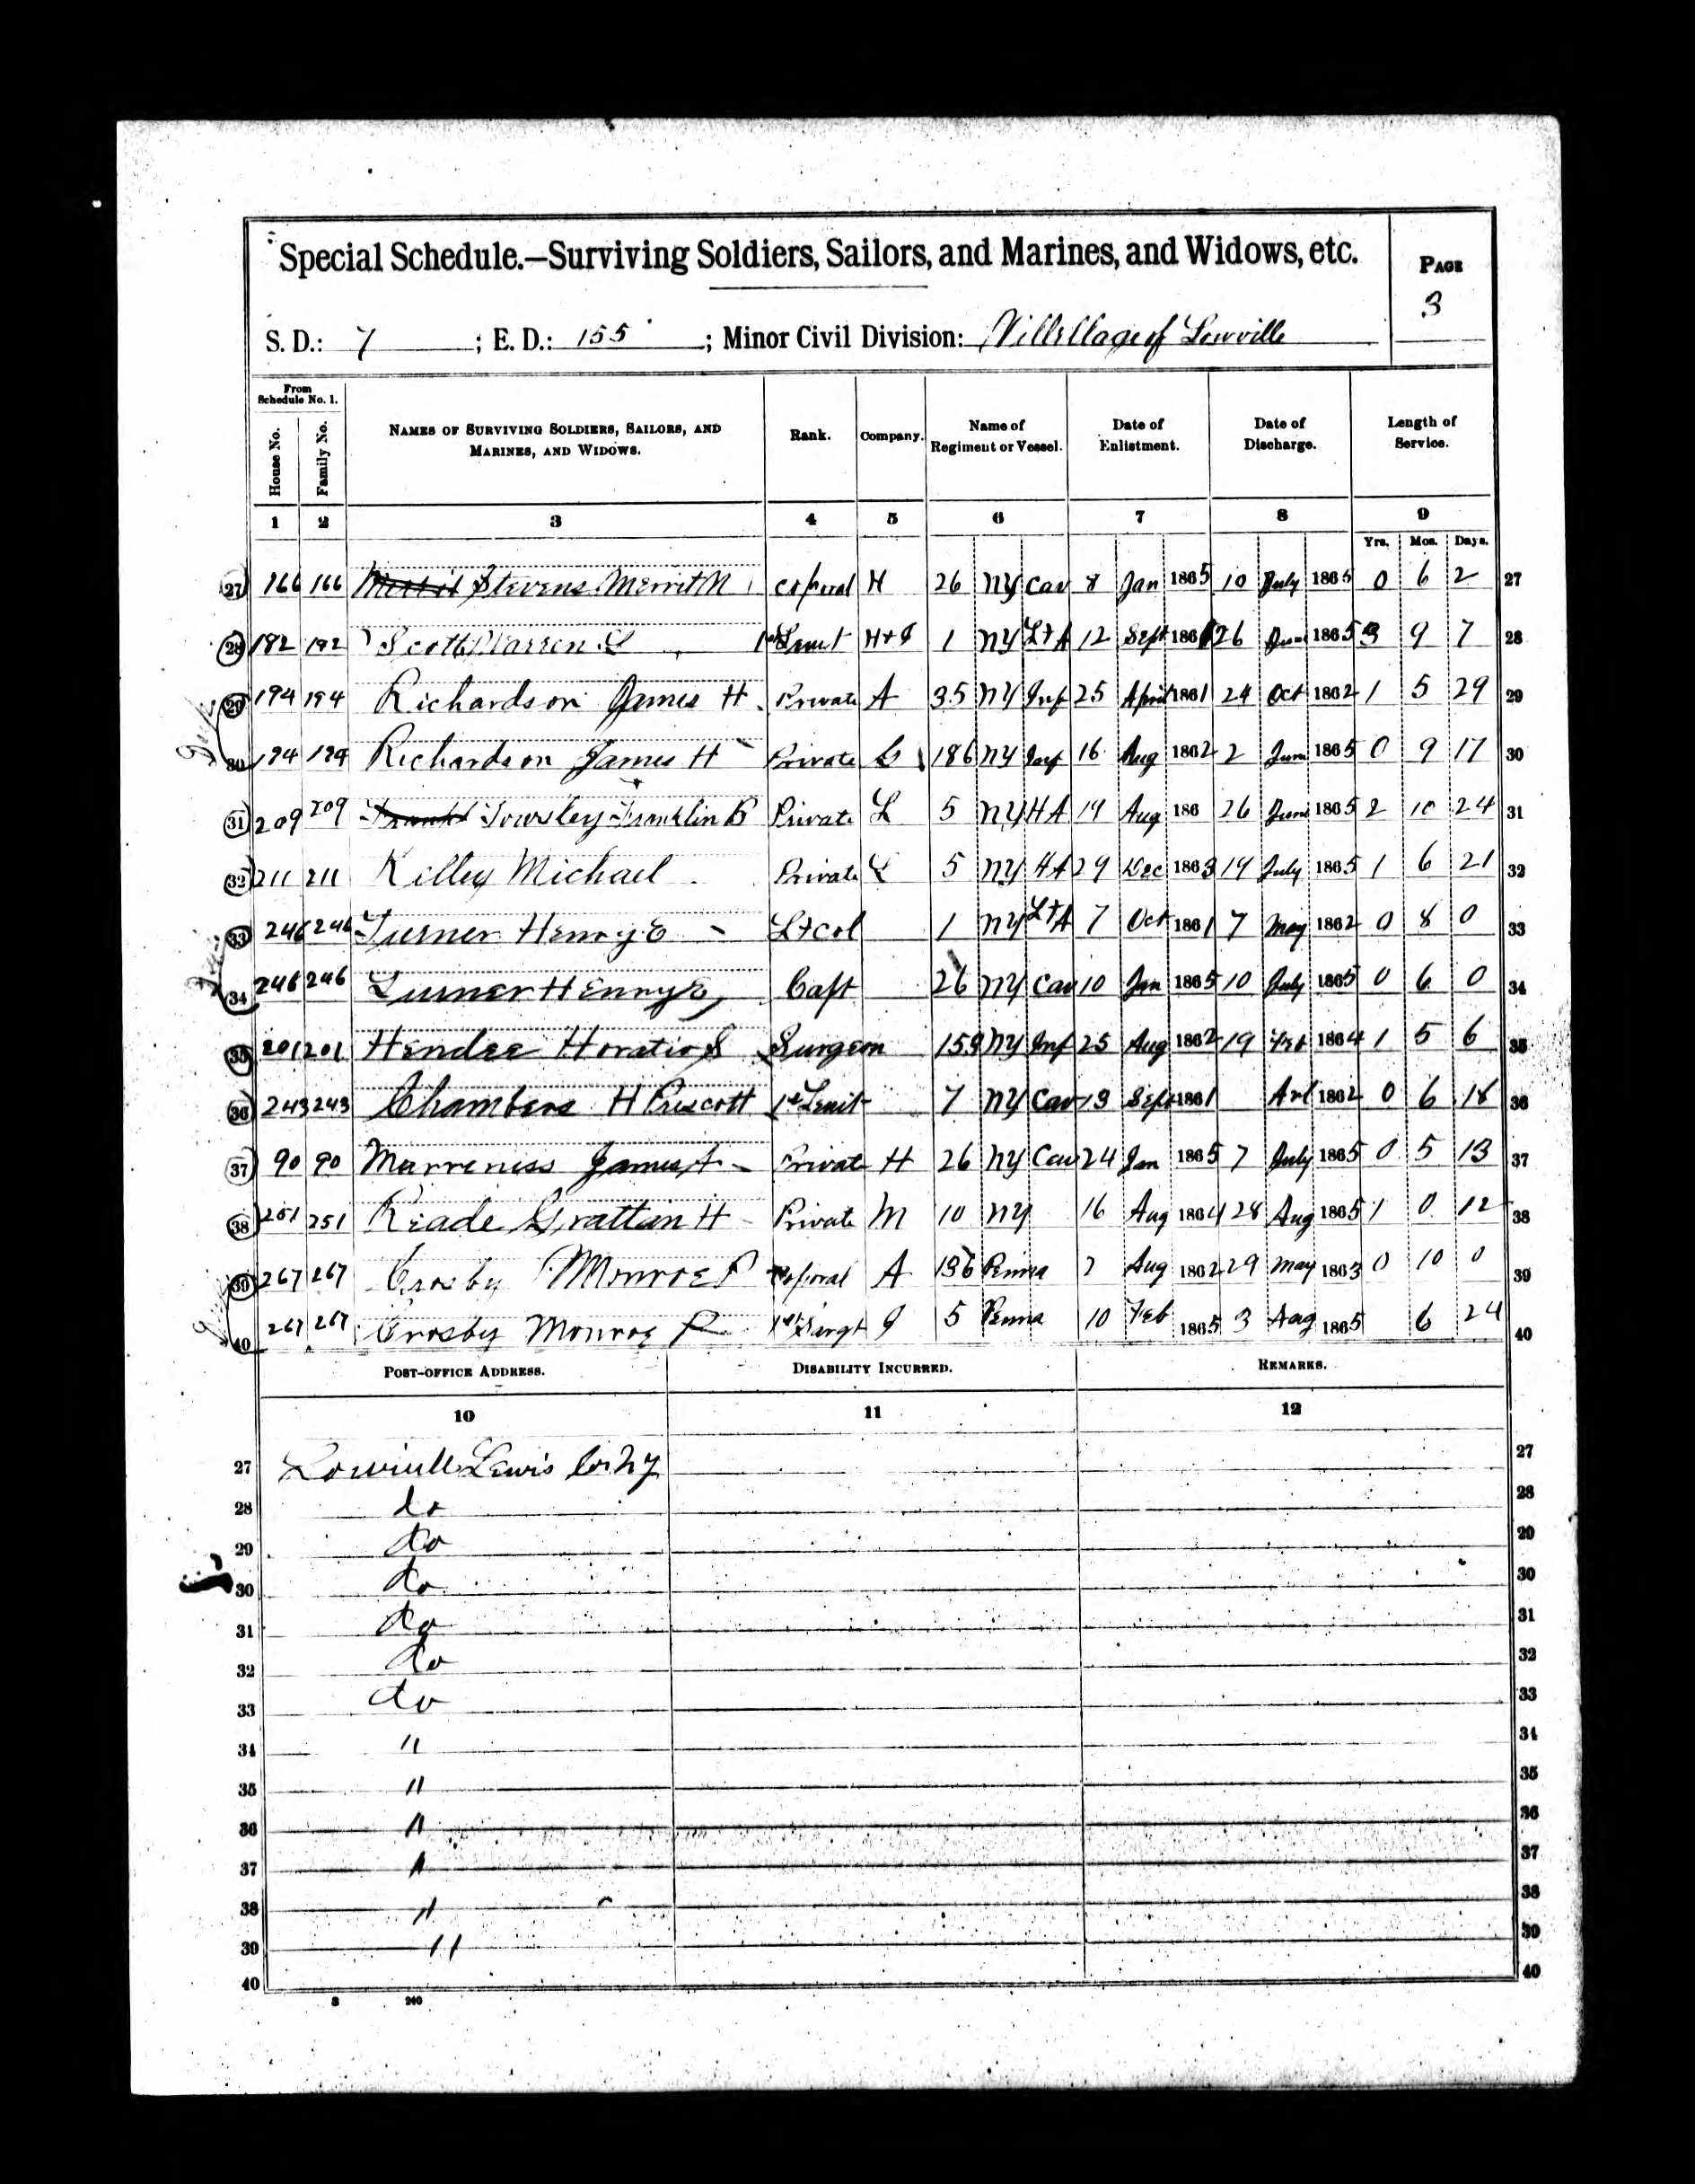 Special Schedule.—Surviving Soldiers, Sailors, and Marines, and Widows, etc.
PAGE
3
S. D.: 7 ; E. D.: 155 ; Minor Civil Division: Villellage of Lowville
From Schedule No. 1.
House No. Family No. NAMES OF SURVIVING SOLDIERS, SAILORS, AND MARINES, AND WIDOWS. Rank. Company. Name of Regiment or Vessel. Date of Enlistment. Date of Discharge. Length of Service.
1 2 3 4 5 6 7 8 9
Yrs. Mos. Days.
27 166 166 Stevens Merrit N Coporal H 26 NY Cav 8 Jan 1865 10 July 1865 0 6 2 27
28 192 192 Scott Warren S 1st H+I 1 NY Lt A 12 Sept 1861 26 June 1865 3 9 7 28
29 194 194 Richardson James H. Private A 35 NY Inf 25 April 1861 24 Oct 1862 1 5 29 29
30 194 194 Richardson James H Private G 186 NY Inf 16 Aug 1862 2 June 1865 0 9 17 30
31 209 209 Frank Towsley Franklin B Private L 5 NY H A 19 Aug 186 26 June 1865 2 10 24 31
32 211 211 Killey Michael Private L 5 NY H A 29 Dec 1863 19 July 1865 1 6 21 32
33 246 246 Turner Henry E Lt col 1 NY Lt A 7 Oct 1861 7 May 1862 0 8 0 33
34 246 246 Turner Henry E Capt 26 NY Cav 10 Jan 1865 10 July 1865 0 6 0 34
35 201 201 Hendee Horatio S Surgeon 153 NY Inf 25 Aug 1862 19 Feb 1864 1 5 6 35
36 243 243 Chambers H Prescott 1st Leuit 7 NY Cav 13 Sept 1861 1862 0 6 18 36
37 90 90 Marreness James A Private H 26 NY Cav 24 Jan 1865 7 July 1865 0 5 13 37
38 251 251 Reade Grattan H Private M 10 NY 16 Aug 1864 28 Aug 1865 1 0 12 38
39 267 267 Crosby Monroe P Coporal A 136 Penna 7 Aug 1862 29 May 1863 0 10 0 39
40 267 267 Crosby Monroe P 1st Sergt G 5 Penna 10 Feb 1865 3 Aug 1865 6 24 40
POST-OFFICE ADDRESS. DISABILITY INCURRED. REMARKS.
10 11 12
27 Lowville Lewis Co NY 27
28 do 28
29 do 29
30 do 30
31 do 31
32 do 32
33 do 33
34 " 34
35 " 35
36 " 36
37 " 37
38 " 38
39 " 39
40 40
S 240